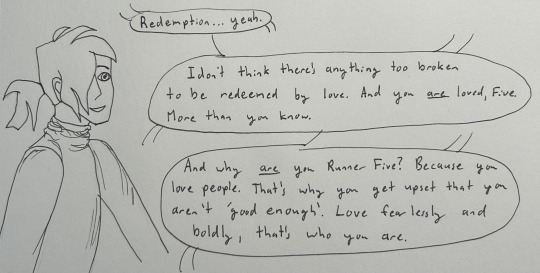 Redemption... yeah.
I don't think there's anything too broken
to be redeemed by love. And you are loved, Five.
More than you know.
And why are you Runner Five? Because you
love people. That's why you get upset that you
aren't 'good enough'. Love fearlessly and
boldly, that's who you are.